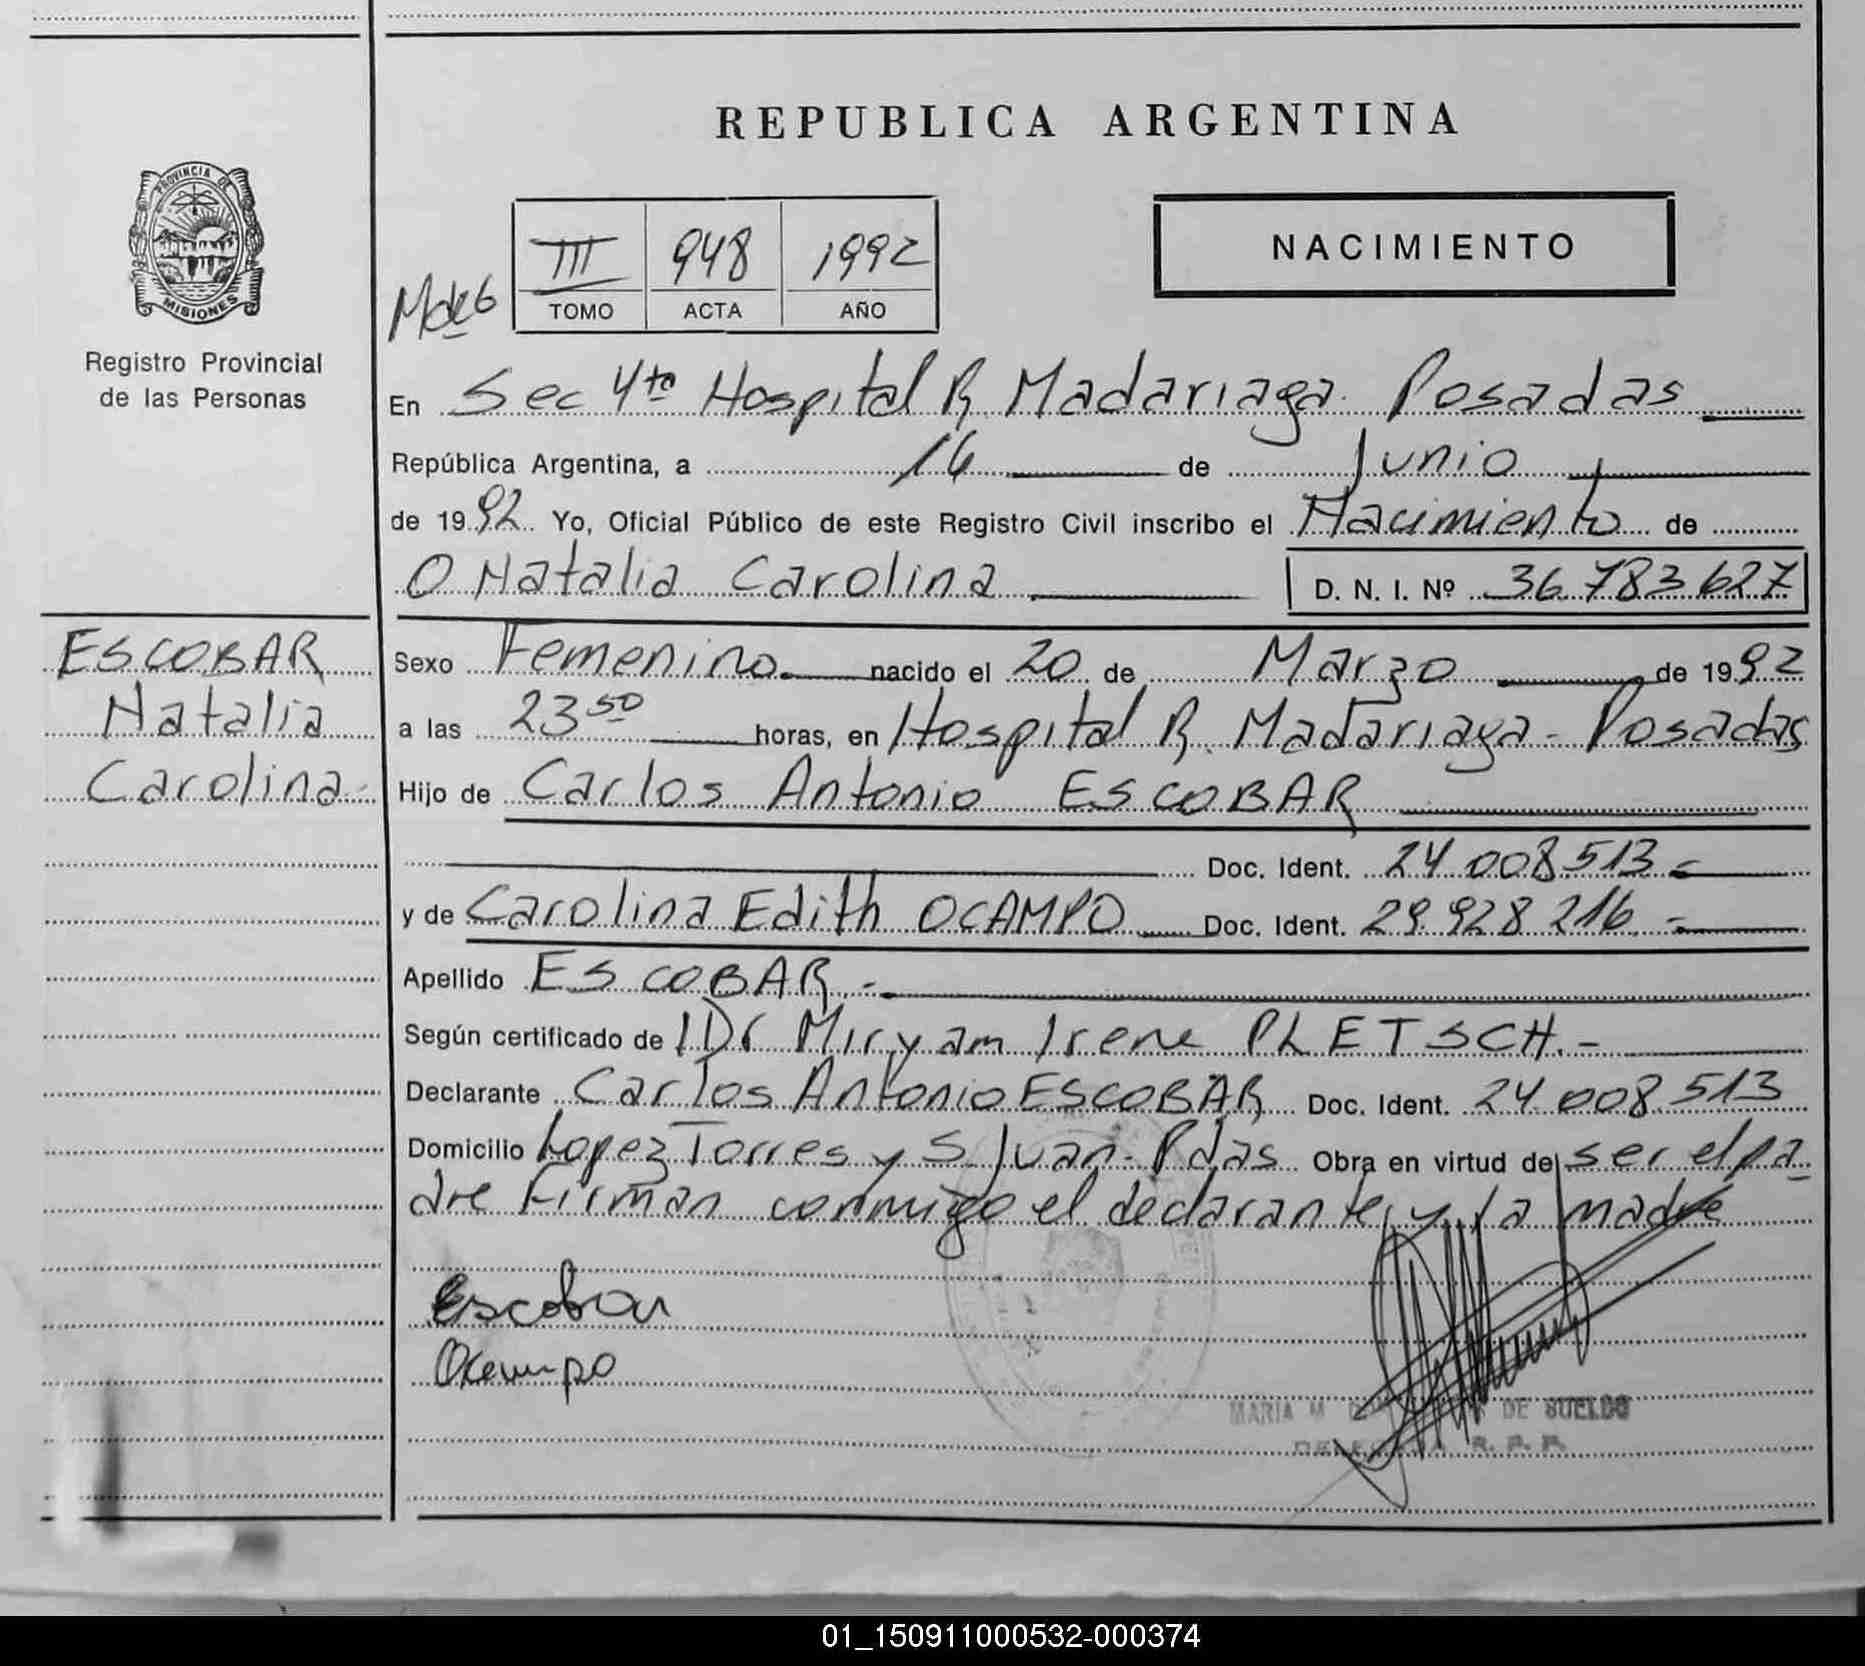 REPUBLICA ARGENTINA
PROVINCIA DE
MISIONES
Registro Provincial
de las Personas
NACIMIENTO
III 948 1992
TOMO ACTA AÑO
En Sec 4to Hospital R. Madariaga. Posadas
República Argentina, a 16 de Junio
de 1992 Yo, Oficial Público de este Registro Civil inscribo el Nacimiento de
Natalia Carolina D. N. I. Nº 36 783 627
ESCOBAR
Natalia
Carolina
Sexo Femenino nacido el 20 de Marzo de 1992
a las 23 50 horas, en Hospital R. Madariaga - Posadas
Hijo de Carlos Antonio ESCOBAR
Doc. Ident. 24 008 513
y de Carolina Edith OCAMPO Doc. Ident. 29 928 216
Apellido ESCOBAR.-
Según certificado de Miryam Irene PLETSCH.-
Declarante Carlos Antonio ESCOBAR Doc. Ident. 24 008 513
Domicilio Lopez Torres y S. Juan - Pdas Obra en virtud de ser el pa
dre Firman conmigo el declarante y la madre
Escobar
Ocampo
MARIA M DE SUELDO
R. P. P.
01_150911000532-000374